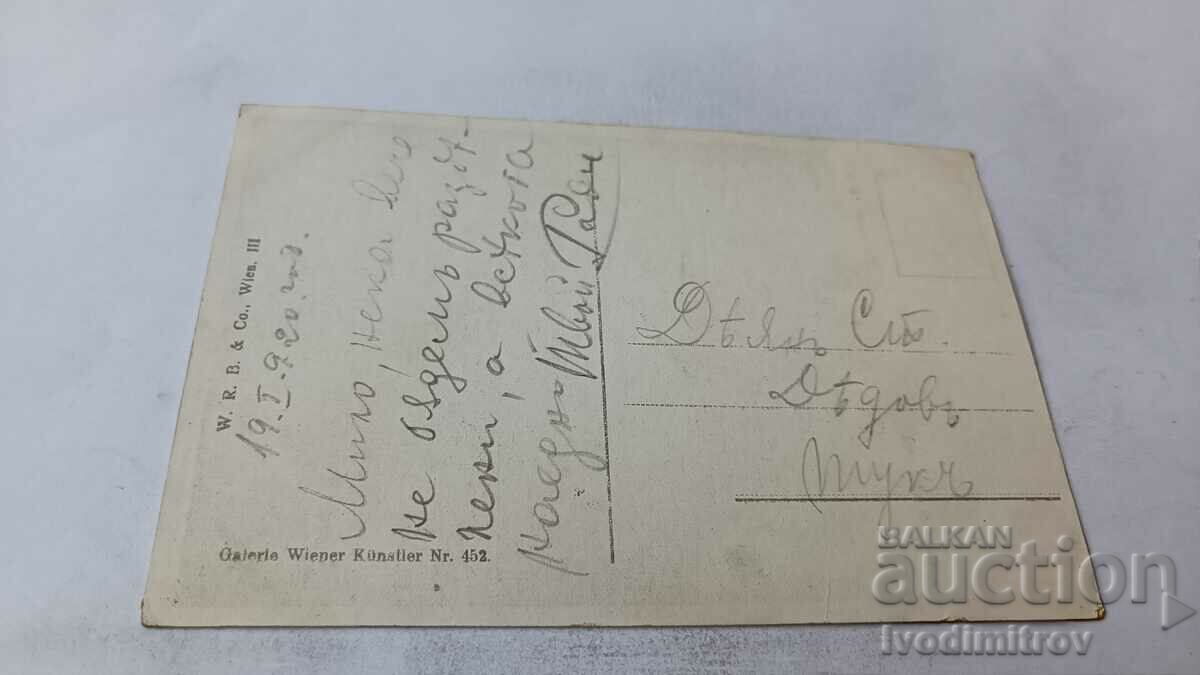 W. R. B. & Co., Wien. III
19.I.920 год.
Мило, нека вече
не бѫдемъ разту-
пени, а всѣкога
наедно
Твой
Galerie Wiener Künstler Nr. 452.
Дѣянъ Ст.
Дѣдовъ
Тукъ
BALKAN
auction
Ivodimitrov